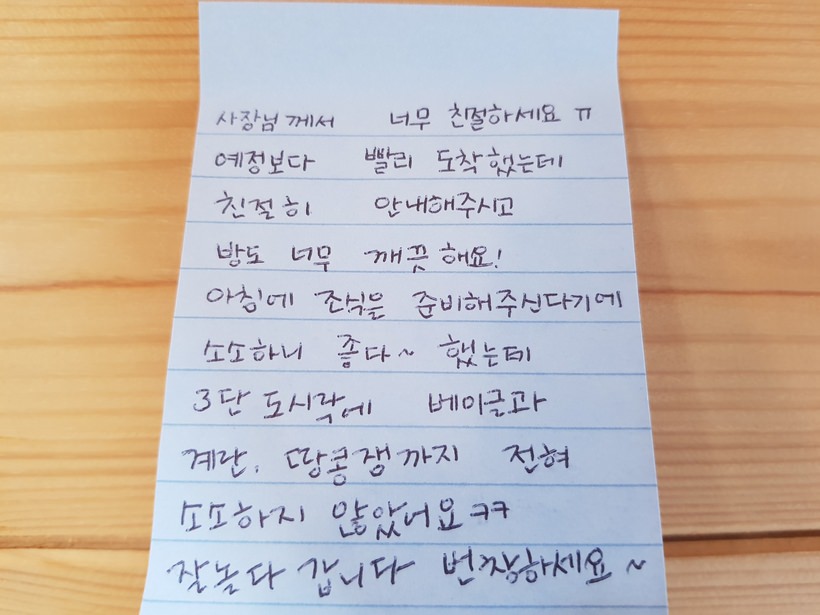 사장님께서 너무 친절하세요 ㅠ
예정보다 빨리 도착했는데
친절히 안내해주시고
방도 너무 깨끗해요!
아침에 조식은 준비해주신다기에
소소하니 좋다~ 했는데
3단 도시락에 베이글과
계란, 땅콩쨍까지 전혀
소소하지 않았어요 ㅋㅋ
잘놀다 갑니다 번짱하세요~